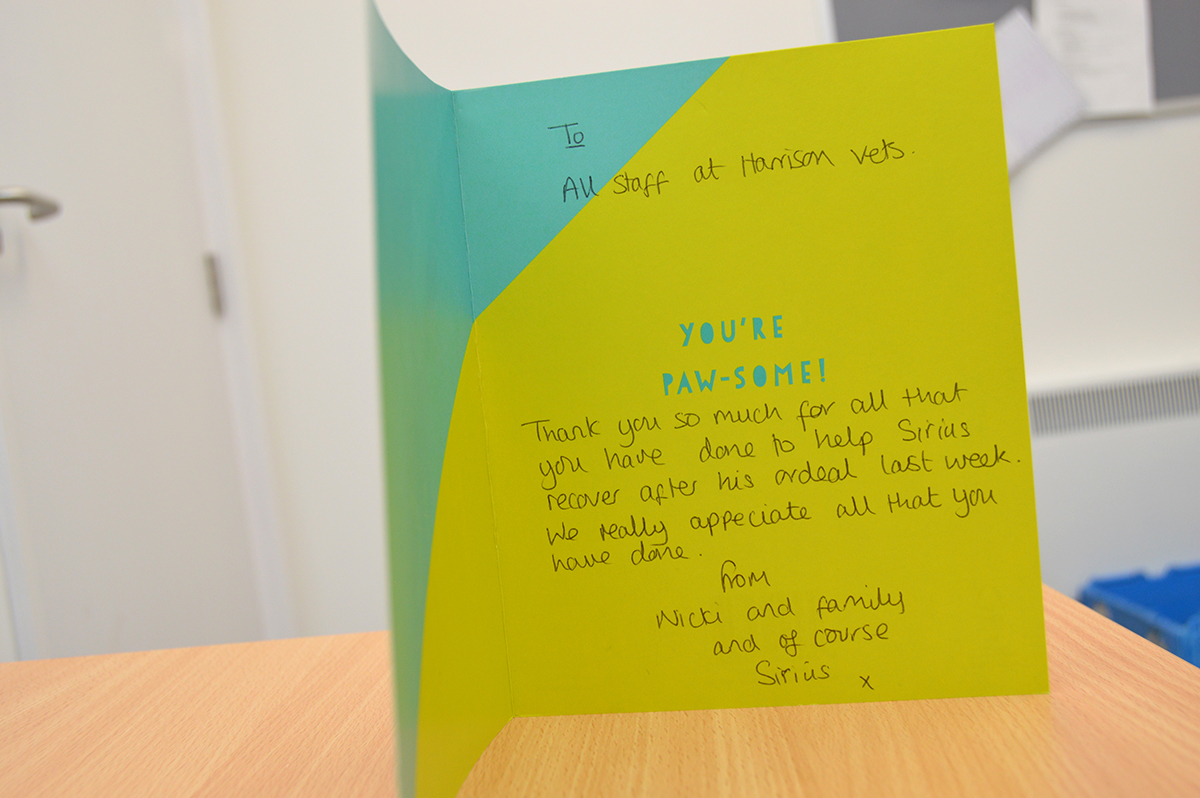 To
All staff at Harrison vets.
YOU'RE
PAW-SOME!
Thank you so much for all that
you have done to help Sirius
recover after his ordeal last week.
We really appeciate all that you
have done.
from
Nicki and family
and of course
Sirius x